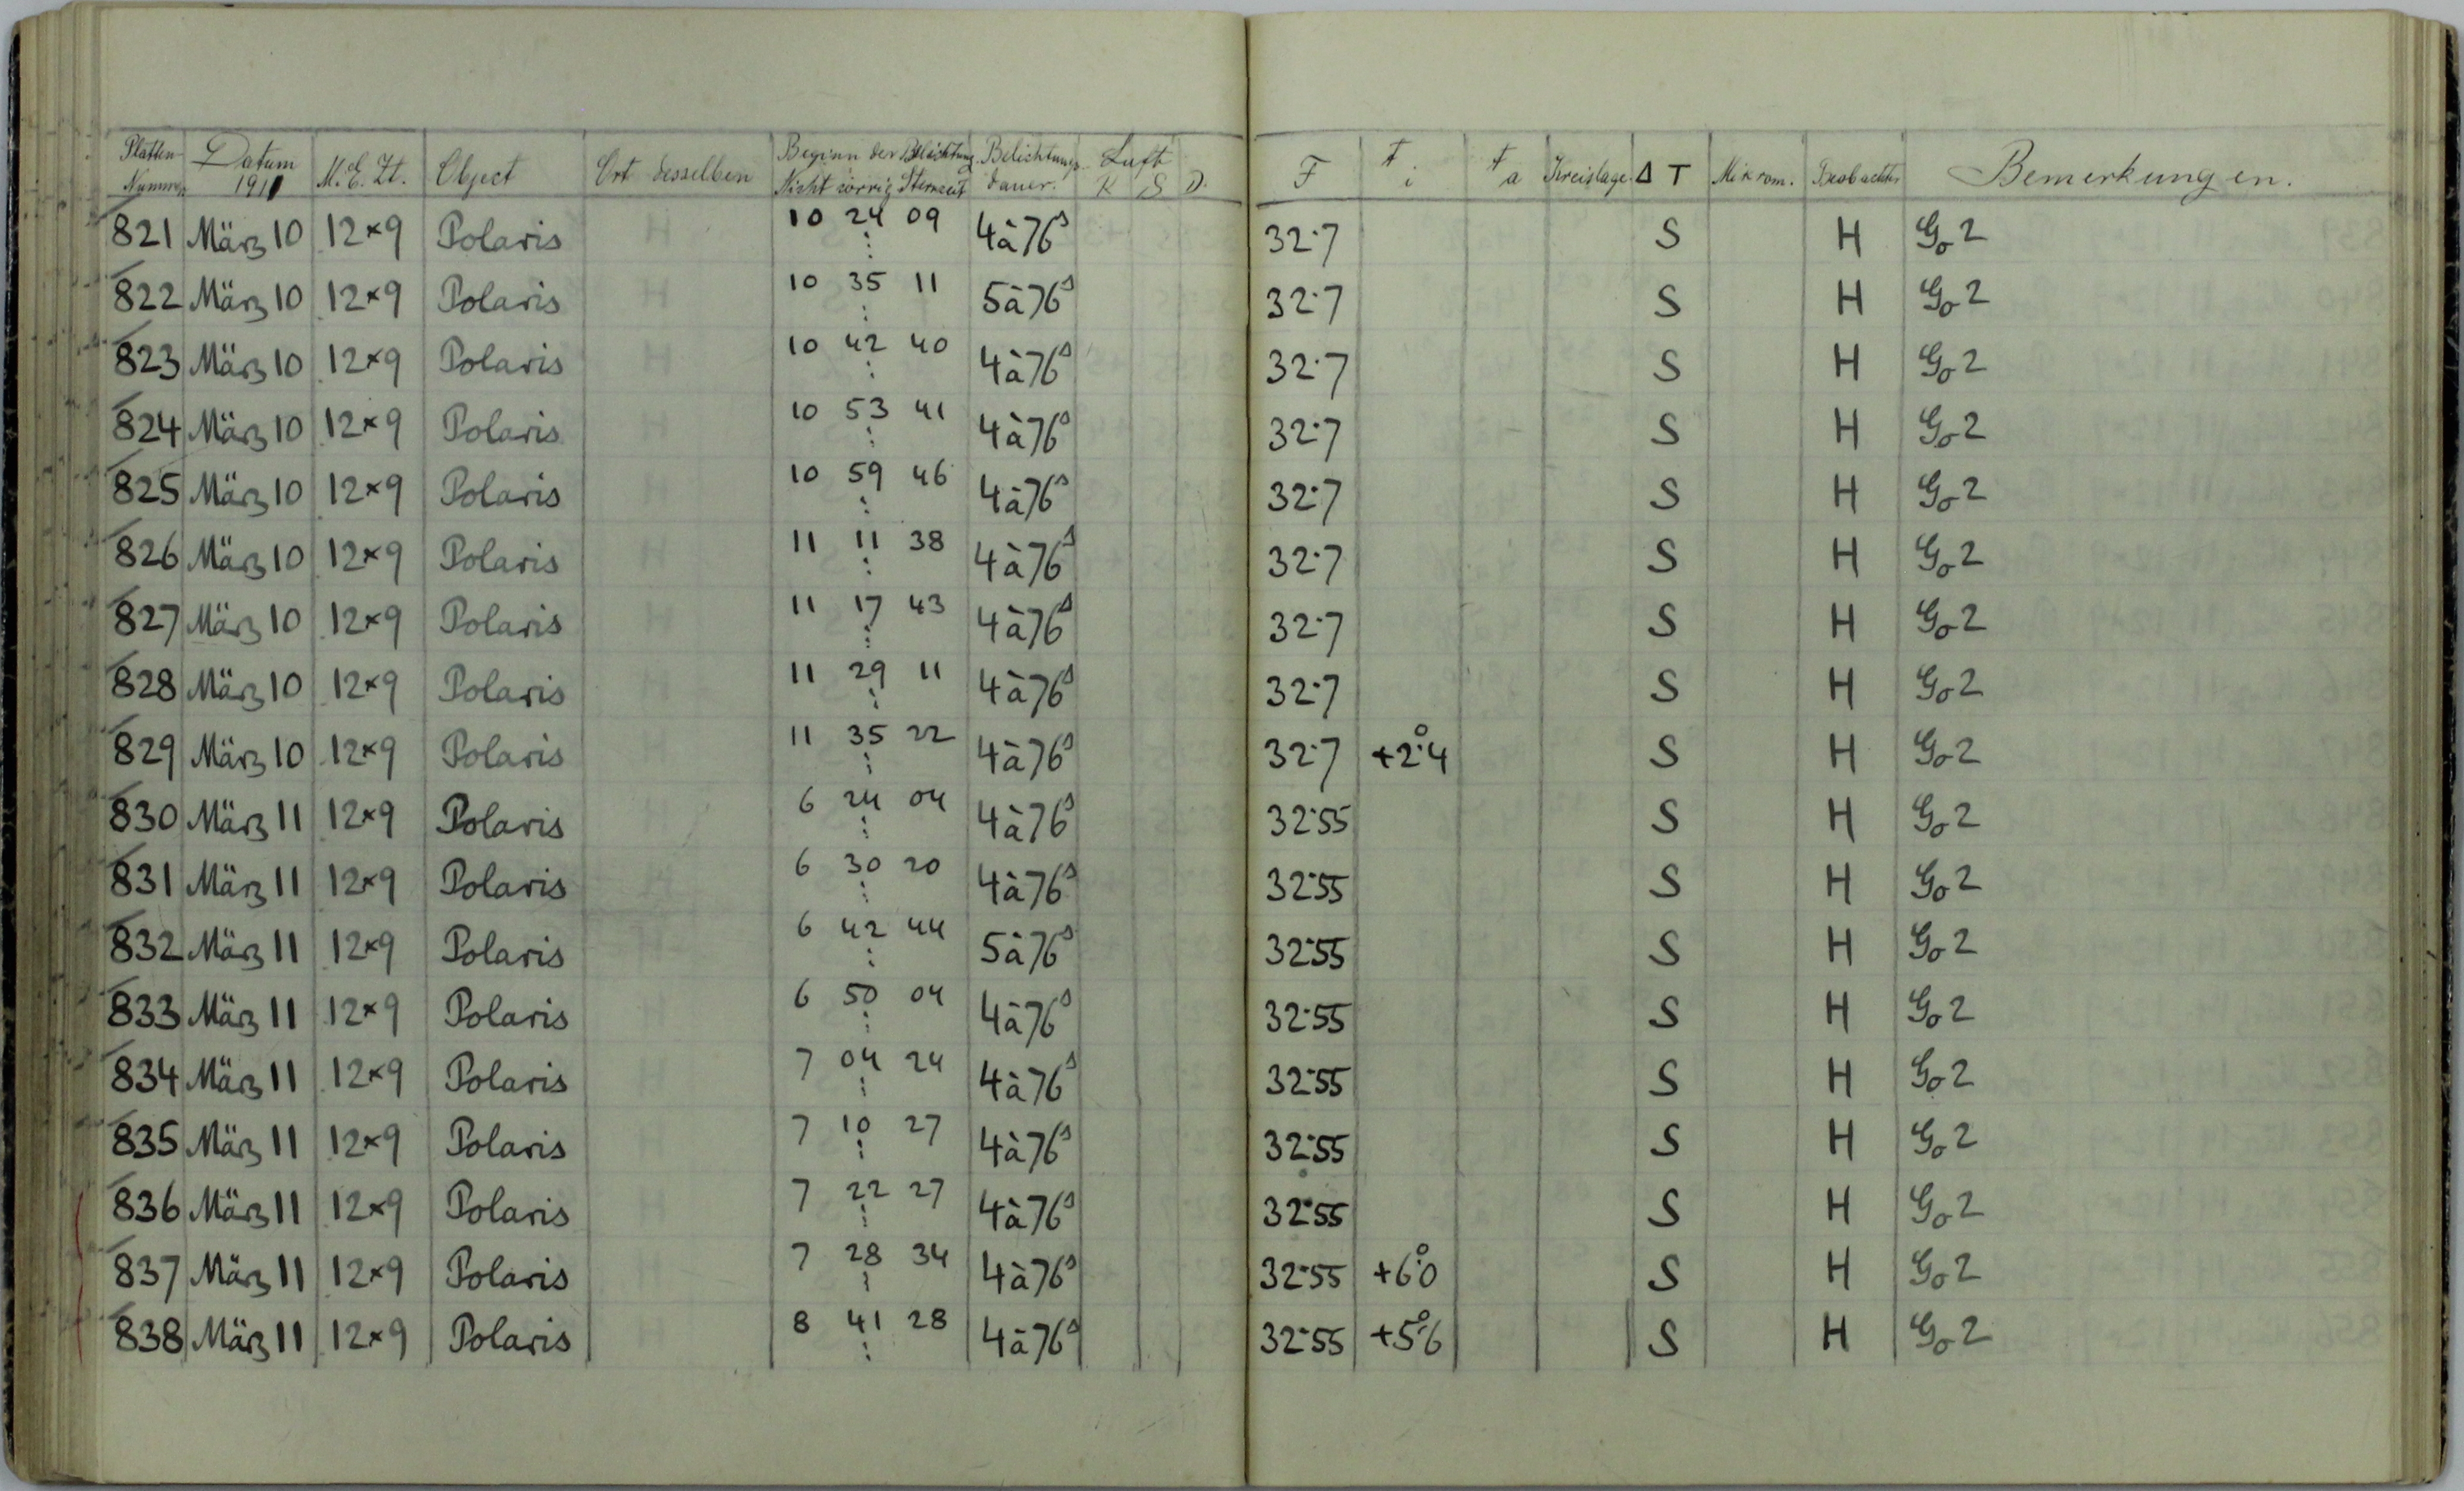 Platten- Nummer Datum 1911 M. E. Zt. Object Ort desselben Beginn der Belichtung Nicht corrig Sternzeit Belichtungs- dauer. Luft R S D. F t i t a Kreislage Δ T Mikrom. Beobachter Bemerkungen.
821 März 10 12×9 Polaris 10 24 09 4à76s 32.7 S H Go 2
822 März 10 12×9 Polaris 10 35 11 5à76s 32.7 S H Go 2
823 März 10 12×9 Polaris 10 42 40 4à76s 32.7 S H Go 2
824 März 10 12×9 Polaris 10 53 41 4à76s 32.7 S H Go 2
825 März 10 12×9 Polaris 10 59 46 4à76s 32.7 S H Go 2
826 März 10 12×9 Polaris 11 11 38 4à76s 32.7 S H Go 2
827 März 10 12×9 Polaris 11 17 43 4à76s 32.7 S H Go 2
828 März 10 12×9 Polaris 11 29 11 4à76s 32.7 S H Go 2
829 März 10 12×9 Polaris 11 35 22 4à76s 32.7 +2°.4 S H Go 2
830 März 11 12×9 Polaris 6 24 04 4à76s 32.55 S H Go 2
831 März 11 12×9 Polaris 6 30 20 4à76s 32.55 S H Go 2
832 März 11 12×9 Polaris 6 42 44 5à76s 32.55 S H Go 2
833 März 11 12×9 Polaris 6 50 04 4à76s 32.55 S H Go 2
834 März 11 12×9 Polaris 7 04 24 4à76s 32.55 S H Go 2
835 März 11 12×9 Polaris 7 10 27 4à76s 32.55 S H Go 2
836 März 11 12×9 Polaris 7 22 27 4à76s 32.55 S H Go 2
837 März 11 12×9 Polaris 7 28 34 4à76s 32.55 +6°.0 S H Go 2
838 März 11 12×9 Polaris 8 41 28 4à76s 32.55 +5°.6 S H Go 2